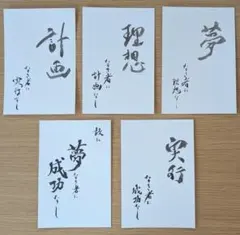 夢
なき者に
理想なし
理想
なき者に
計画なし
計画
なき者に
実行なし
実行
なき者に
成功なし
故に
夢なき者に
成功なし